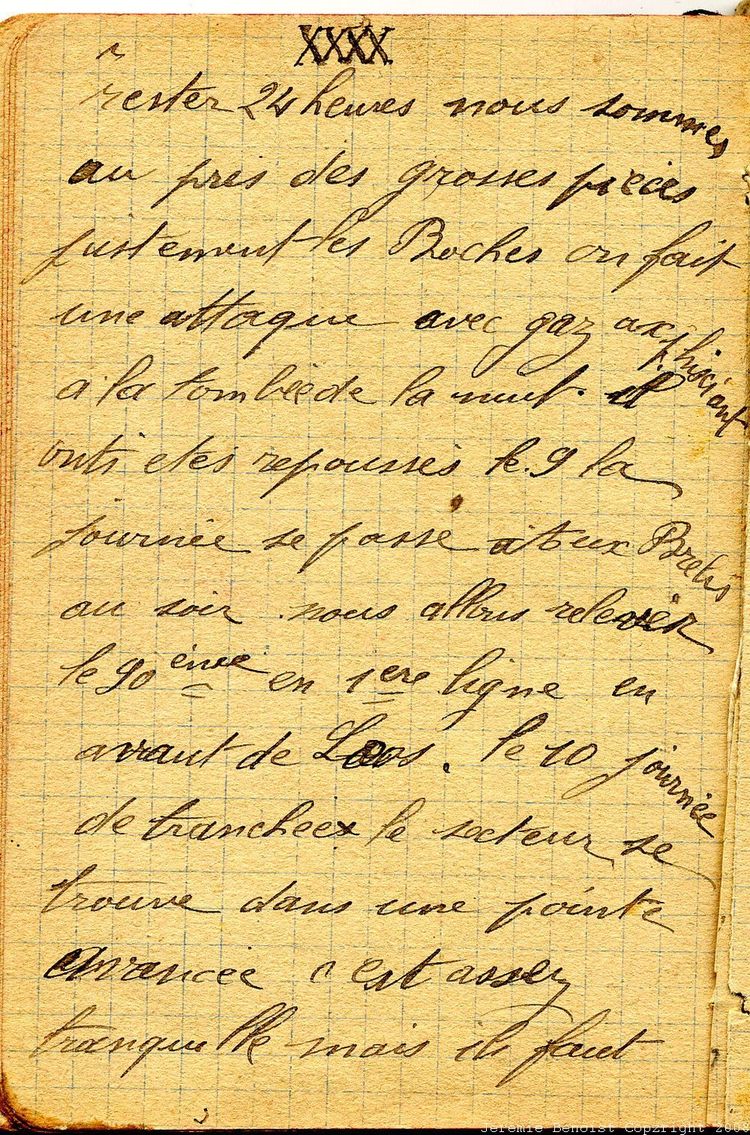 XXXX
rester 24 heures nous sommes
au pres des grosses pieces
justement les Boches on fait
une attaque avec gaz axphisciant
a la tombée de la nuit. et
onti etes repoussés le. 9 la
journée se passe aux Brebis
au soir nous allons relever
le 90 ème en 1ere ligne en
avant de Loos. le 10 journée
de tranchees le secteur se
trouve dans une pointe
avancée c est assez
tranquille mais ils faut
Jeremie Benoist Copyright 200